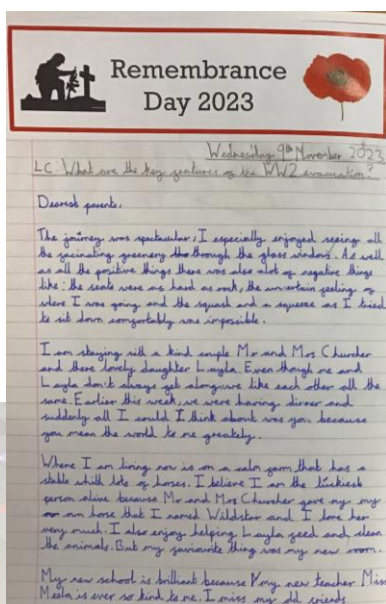 Remembrance
Day 2023
Wednesday 9th November 2023
LC: What are the key features of the WW2 evacuation?
Dearest parents,
The journey was spectacular, I especially enjoyed seeing all
the fascinating greenery through the glass windows. As well
as all the positive things there was also alot of negative things
like: the seats were as hard as rock, the uncertain feeling of
where I was going and the squash and a squeeze as I tried
to sit down comfortably was impossible.
I am staying with a kind couple Mr and Mrs Churcher
and there lovely daughter Layla. Even though me and
Layla don't always get along, we like each other all the
same. Earlier this week, we were having dinner and
suddenly all I could I think about was you because
you mean the world to me greately.
Where I am living now is on a calm farm that has a
stable whith lots of horses. I believe I am the luckiest
person alive because Mr and Mrs Churcher gave my my
own horse that I named Wildstar and I love her
very much. I also enjoy helping Layla feed and clean
the animals. But my favourite thing was my new room.
My new school is brilliant because my new teacher Miss
Meela is ever so kind to me. I miss my old friends